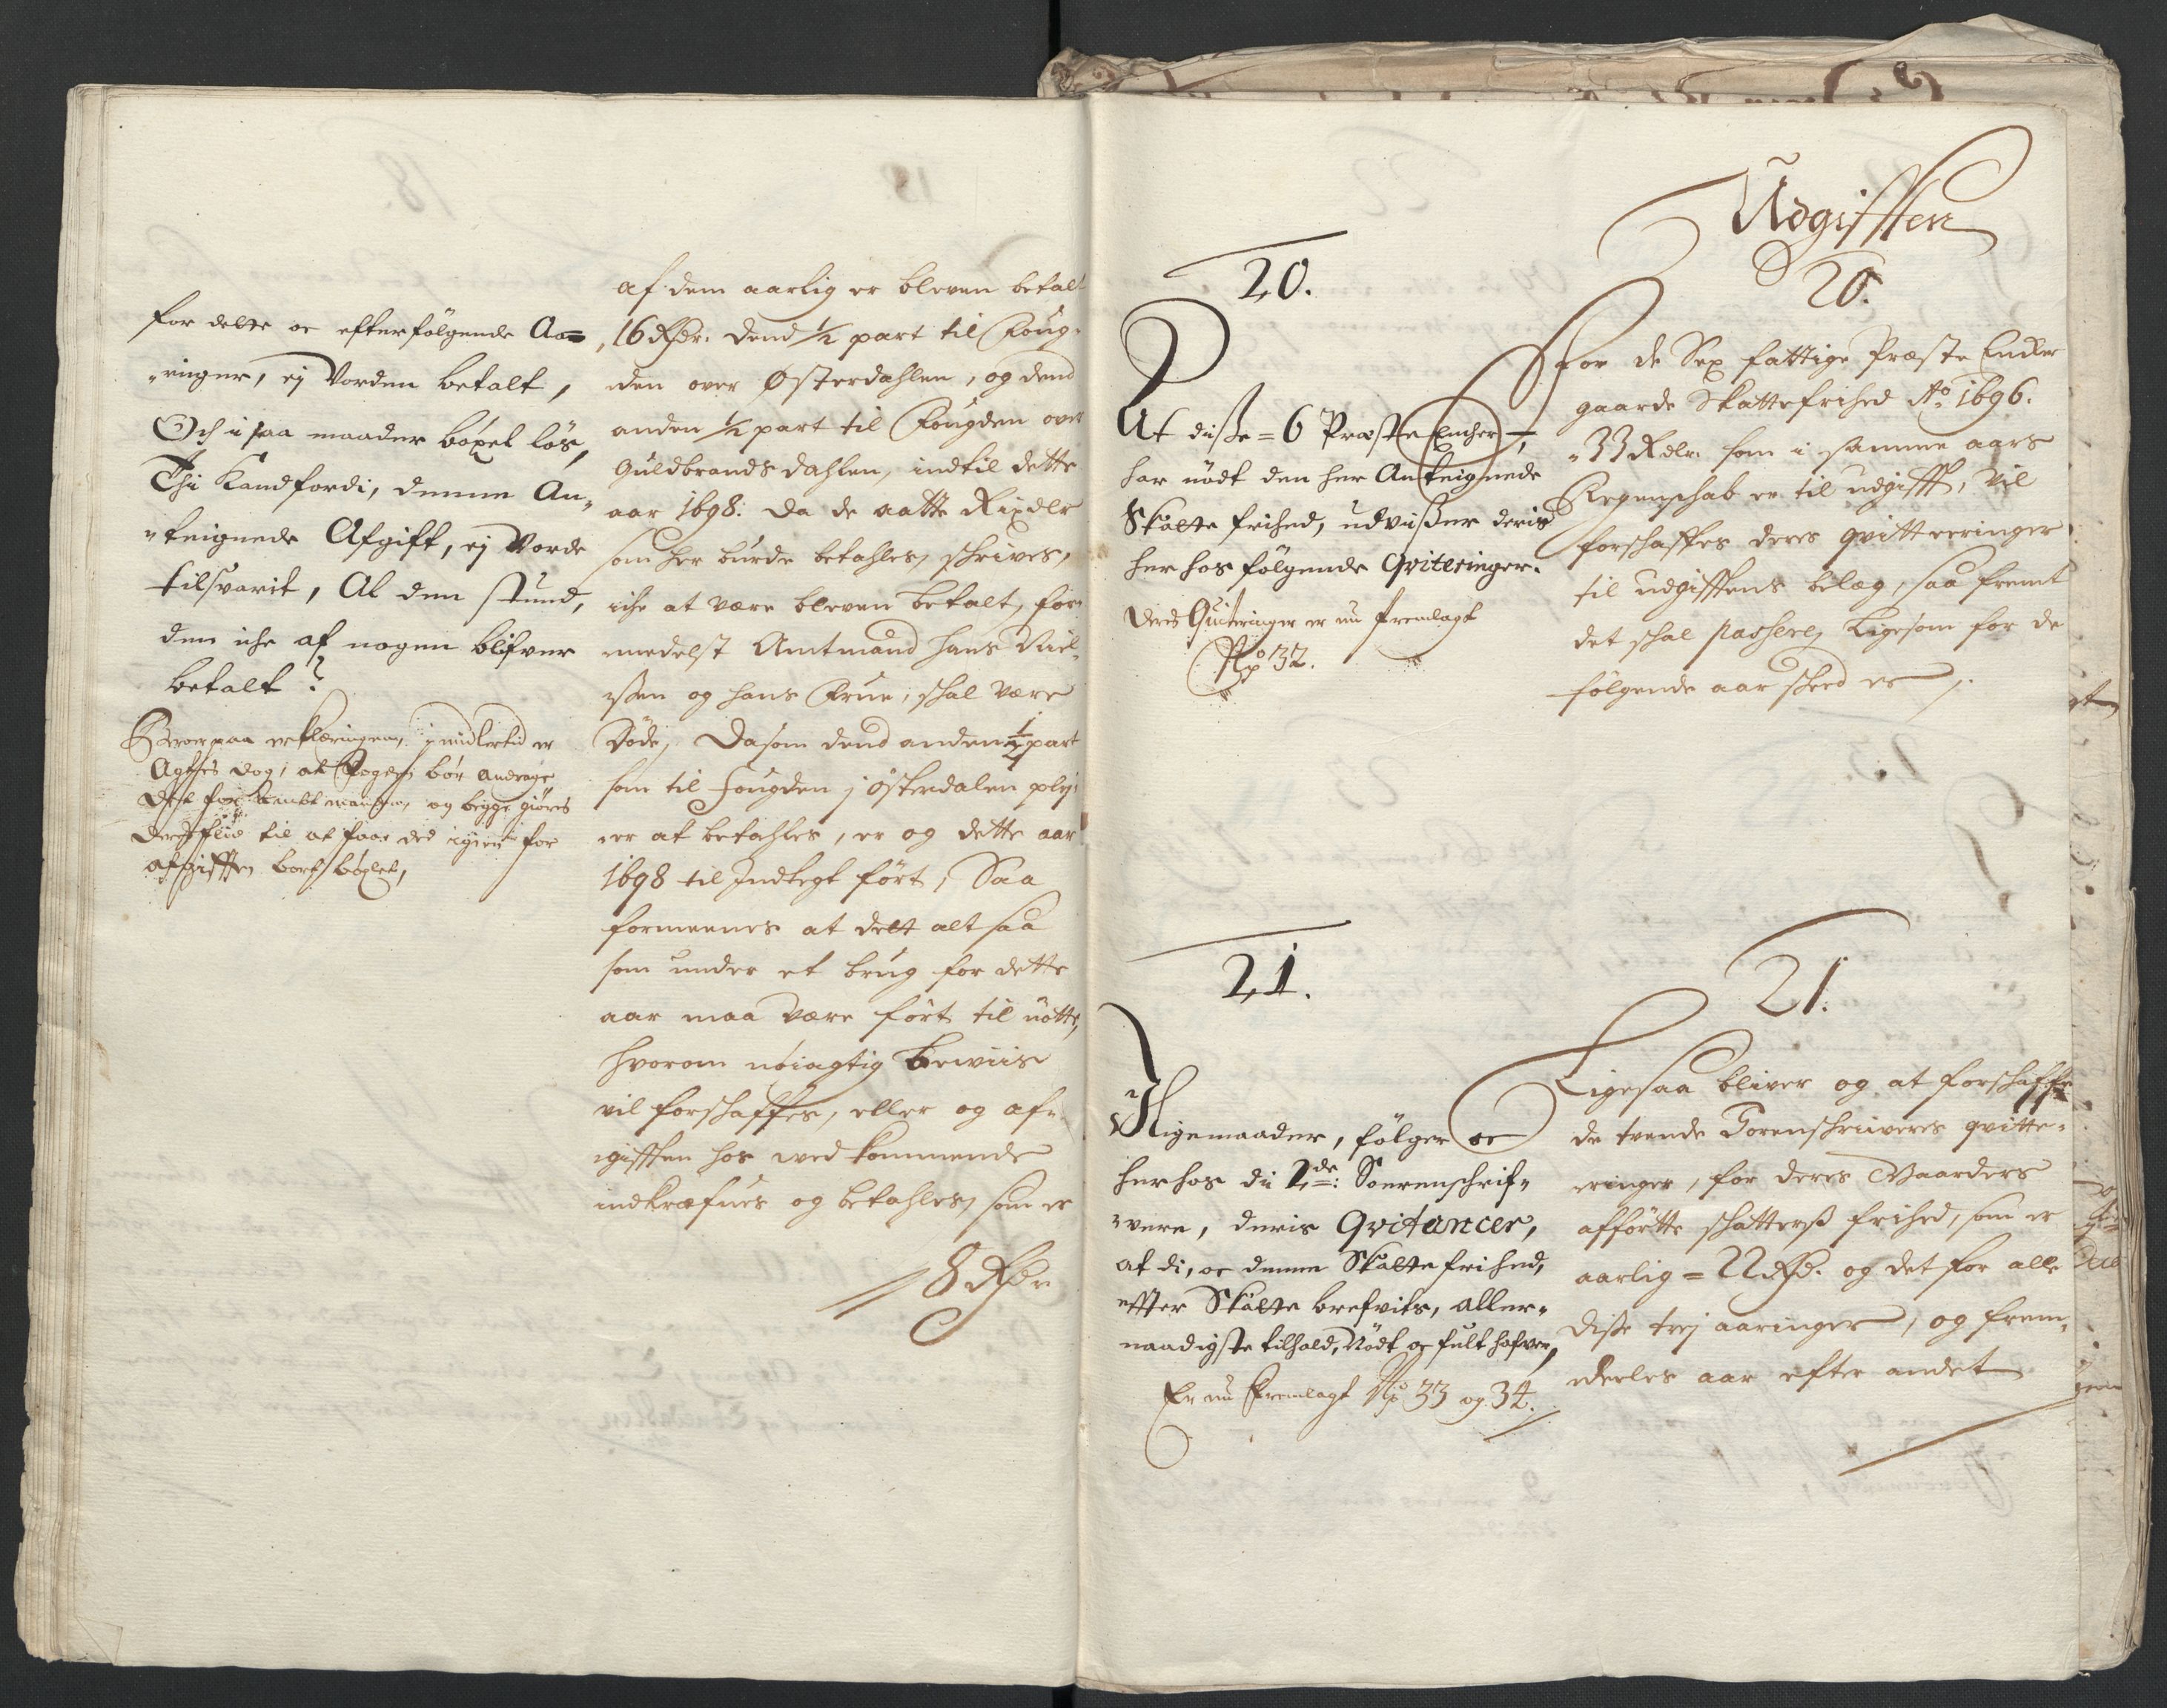 for dette oc efterfølgende Aa=
"ringer, ej Vorden betalt,
Och i saa maader böxel lös,
Thi Kand fordi, denne An-
"teignede Afgift, ej Vorde
tilsvarit, Al den stund,
den iche af nogen blifver
betalt?
Beroer paa erklæringen, imidlertid er
Agtes dog, at Fogden bör andrage
det for Ambtmanden, og begge giöres
deres flid til at faae det igien for
afgifften bort böxlet,
af dem aarlig er bleven betalt
16 Rdr. dend 1/2 part til Foug-
den over Østerdahlen, og dend
anden 1/2 part til Fougden over
Guldbrandsdahlen, indtil dette
aar 1698: da de aatte Rixdlr
som her burde betahles, schrives,
iche at være bleven betalt, for-
medelst Amtmand Hans
og hans Frue, schal være
Döde, Da som dend anden 1/2 part
som til fougden i Østerdalen plej-
er at betahles, er og dette aar
1698 til Indtegt fört, Saa
formeenes at dett alt saa
som under et brug for dette
aar maa være fört til nötte,
hvorom nöiagtig beviis
vil forschaffes, eller og af-
gifften hos vedkommende
indkræfves og betahles, som er
8 Rdr
Udgifften
20.
At disse = 6 Præste Encher,
har nödt den her Anteignede
Skatte frihed, udviser deris
her hos fölgende Qviteringer.
Deres Quiteringer er nu fremlagt
No 32.
20.
For de Sex fattige Præste Encker
gaarde Skattefrihed Ao 1696.
33 Rdlr. som i samme aars
Regenschab er til udgifft, vil
forschaffes deres qvitteeringer
til udgifftens belæg, saa fremt
det schal passere, Ligesom for de
fölgende aar scheed er
21.
I Ligemaader, fölger oc
herhos di 2de: Sorenschrif-
"vere, deris Qvitancer,
at di, oc denne Skatte frihed,
effter Skatte brefvits, aller-
naadigste tilhold, Nödt oc fult hafver,
Er nu fremlagt No 33 og 34.
21.
Ligesaa bliver og at forschaffe
de tvende Sorenschriiveres qvitte-
eringer, for deres Gaarders
afförte schatters frihed, som er
aarlig = 22 Rd. og det for alle
disse trej aaringer, og frem-
deeles aar efter andet